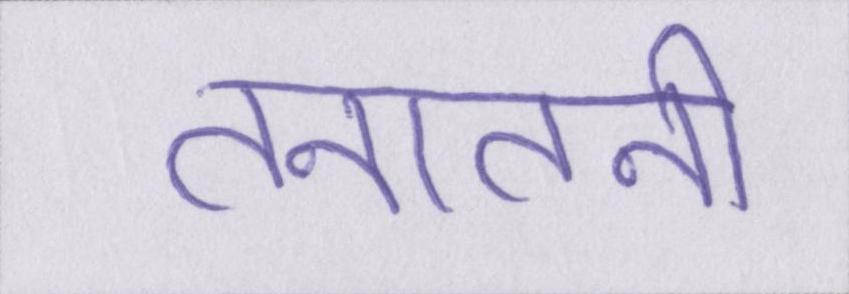 तनातनी